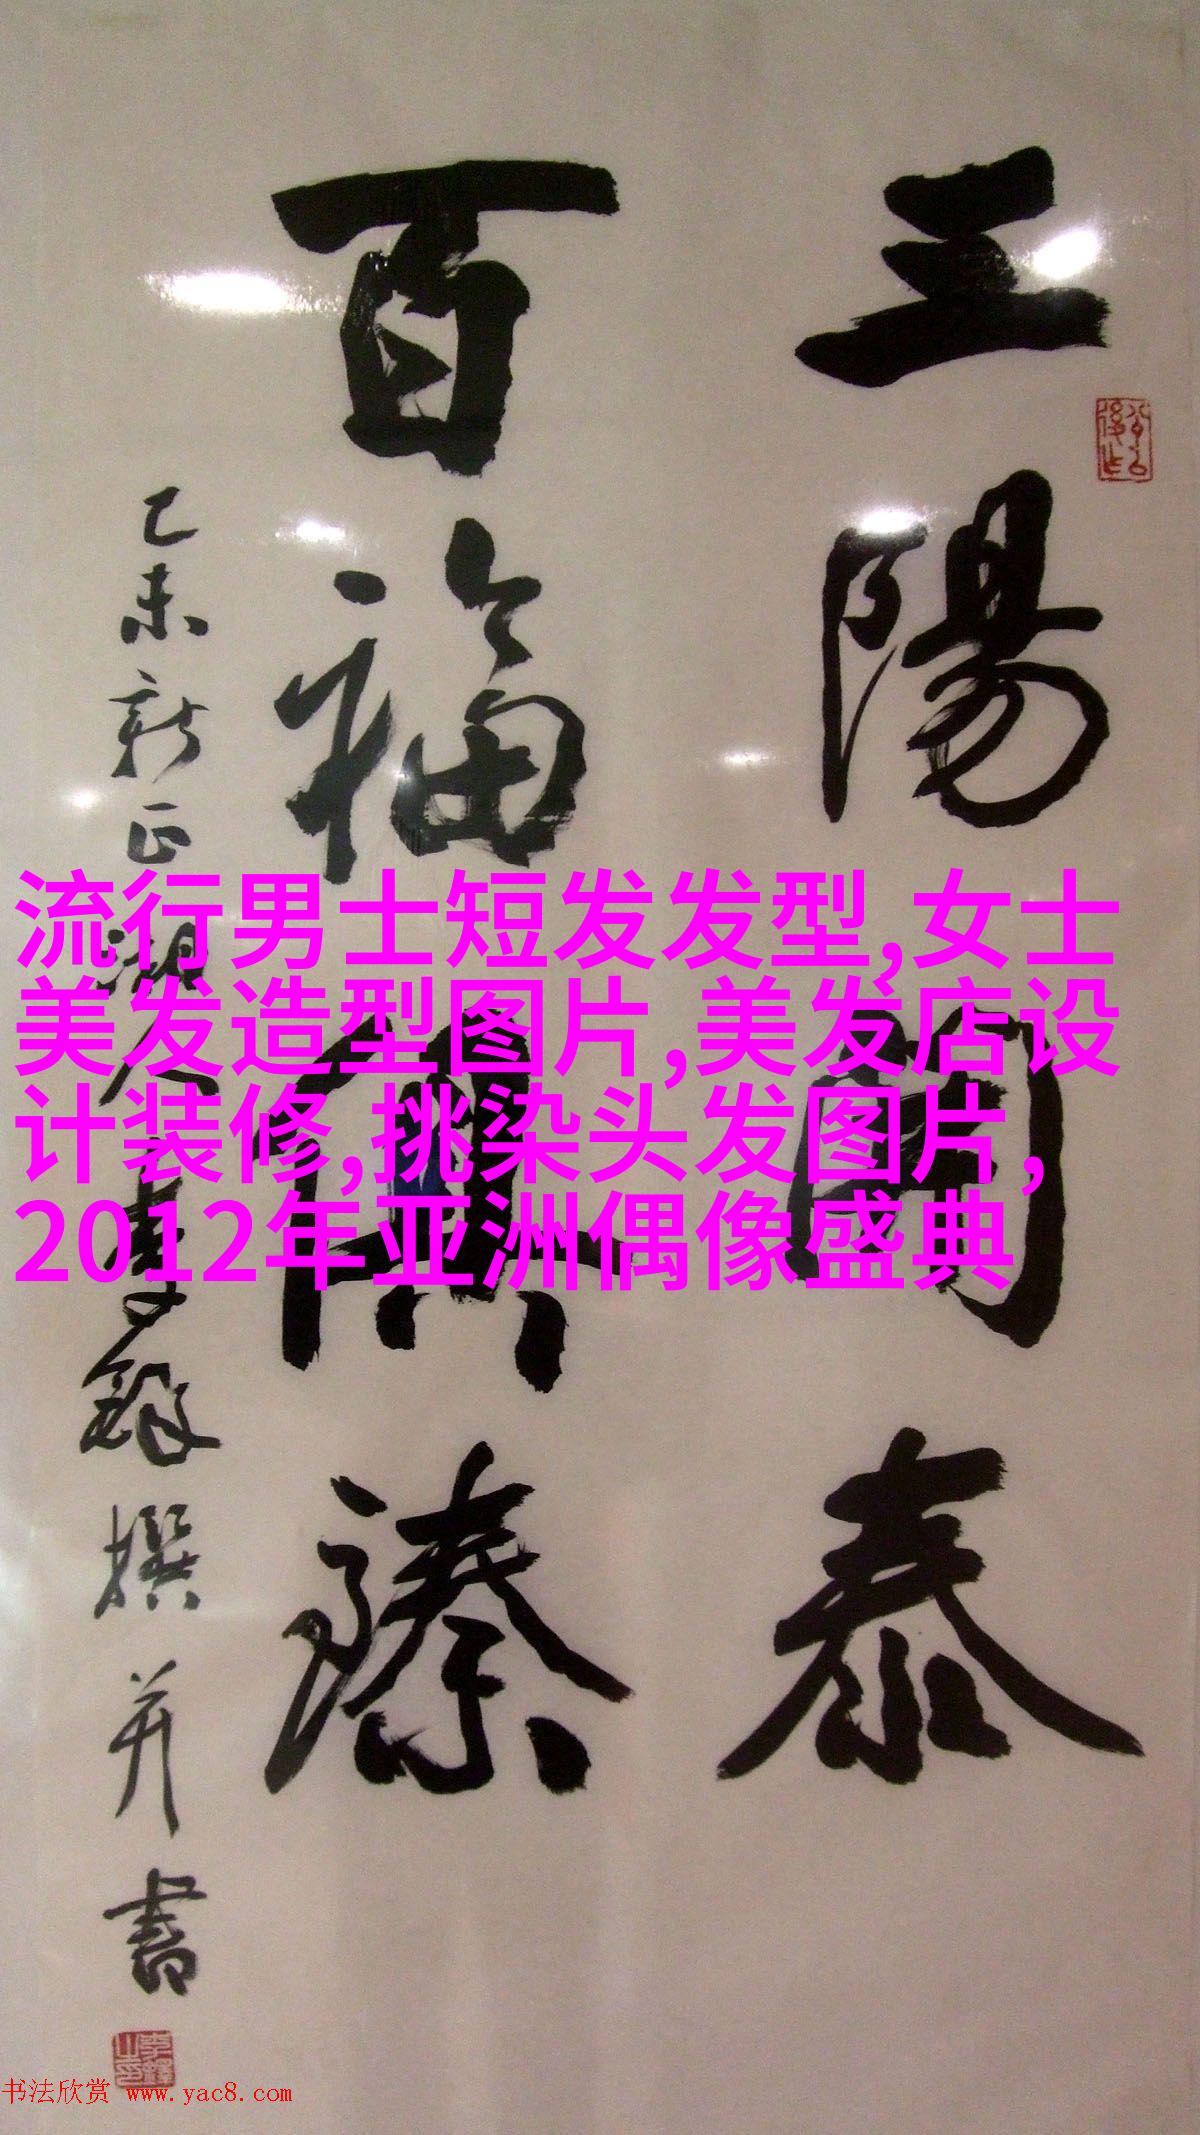 三陽開泰
百福具臻
乙未新正湖人李鐸撰并書
流行男士短发发型,女士
美发造型图片,美发店设
计装修,挑染头发图片,
2012年亚洲偶像盛典
书法欣赏 www.yac8.com